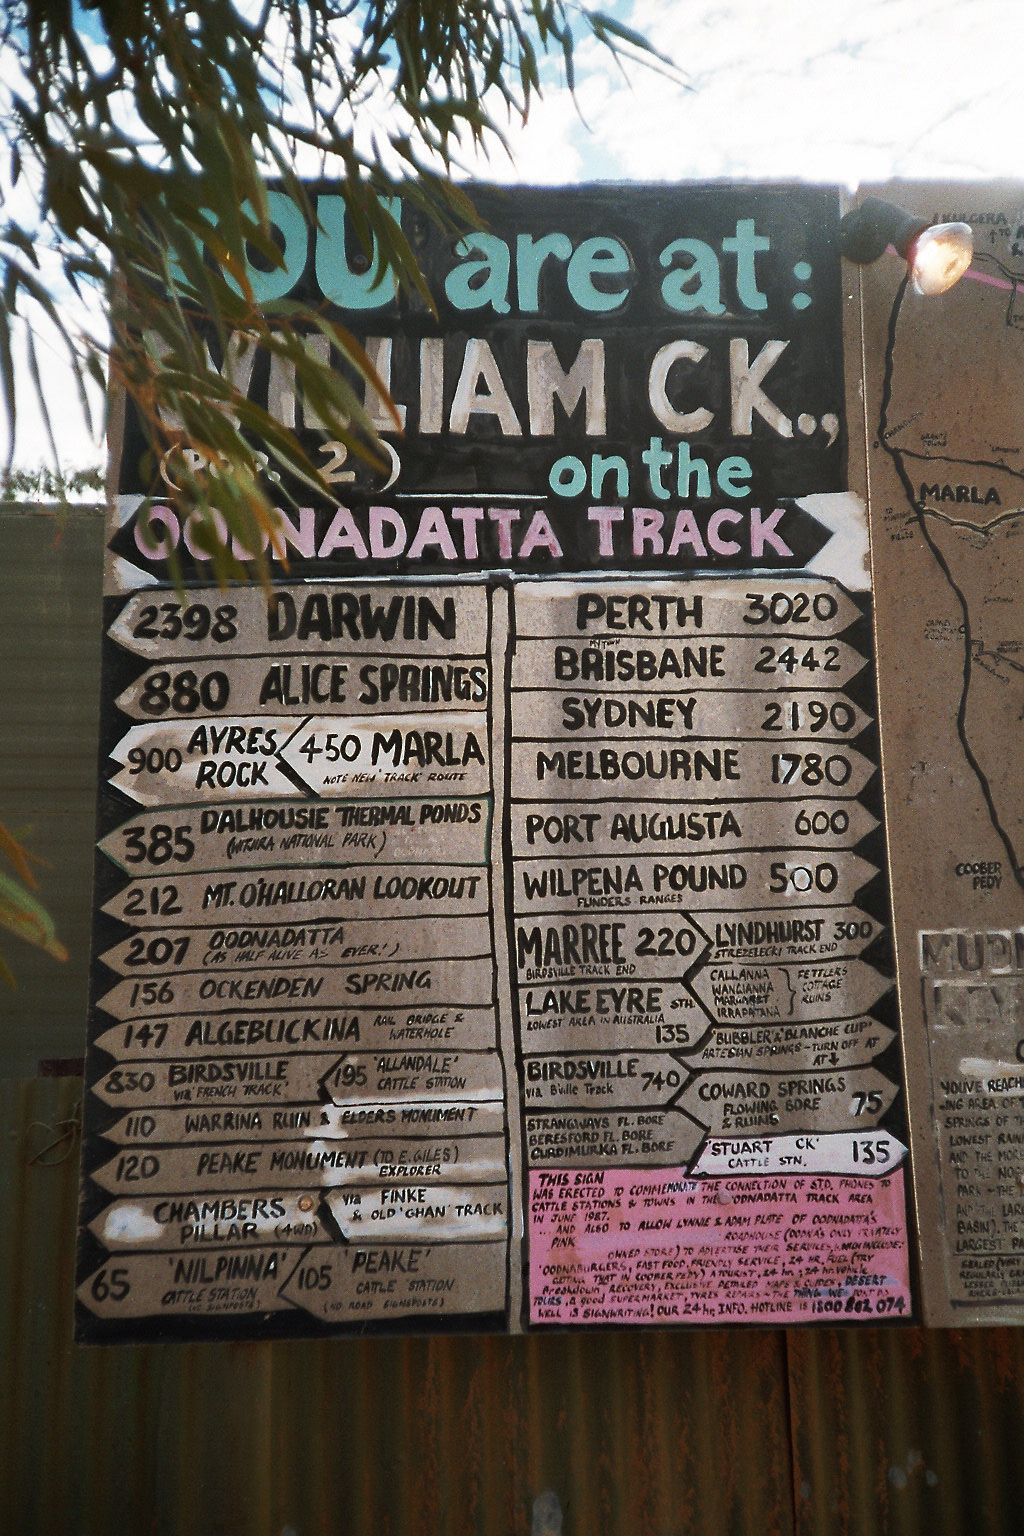 YOU are at:
WILLIAM CK.,
(POP. 2) on the
OODNADATTA TRACK
2398 DARWIN
880 ALICE SPRINGS
900 AYRES ROCK
450 MARLA
NOTE NEW 'TRACK' ROUTE
385 DALHOUSIE THERMAL PONDS
(WITJIRA NATIONAL PARK)
212 MT. O'HALLORAN LOOKOUT
207 OODNADATTA
(AS HALF ALIVE AS EVER!)
156 OCKENDEN SPRING
147 ALGEBUCKINA RAIL BRIDGE &
WATERHOLE
830 BIRDSVILLE
via 'FRENCH TRACK'
195 'ALLANDALE'
CATTLE STATION
110 WARRINA RUIN & ELDERS MONUMENT
120 PEAKE MONUMENT (TO E. GILES)
EXPLORER
CHAMBERS
PILLAR (4WD)
via FINKE
& OLD 'GHAN' TRACK
65 'NILPINNA'
CATTLE STATION
(NO SIGNPOSTS)
105 'PEAKE'
CATTLE STATION
(NO ROAD SIGNPOSTS)
PERTH 3020
BRISBANE 2442
SYDNEY 2190
MELBOURNE 1780
PORT AUGUSTA 600
WILPENA POUND 500
FLINDERS RANGES
MARREE 220
BIRDSVILLE TRACK END
LYNDHURST 300
STREZELECKI TRACK END
LAKE EYRE STH.
LOWEST AREA IN AUSTRALIA
135
CALLANNA
WANGIANNA
MARGARET
IRRAPATANA
FETTLERS
COTTAGE
RUINS
'BUBBLER' & 'BLANCHE CUP'
ARTESIAN SPRINGS - TURN OFF AT
AT
BIRDSVILLE 740
via B'ville Track
COWARD SPRINGS
FLOWING BORE
& RUINS
75
STRANGWAYS FL. BORE
BERESFORD FL. BORE
CURDIMURKA FL. BORE
'STUART CK'
CATTLE STN.
135
THIS SIGN
WAS ERECTED TO COMMEMORATE THE CONNECTION OF S.T.D. PHONES TO
CATTLE STATIONS & TOWNS IN THE OODNADATTA TRACK AREA
IN JUNE 1987.
... AND ALSO TO ALLOW LYNNIE & ADAM PLATE OF OODNADATTA'S
PINK ROADHOUSE (OODNA'S ONLY PRIVATELY
OWNED STORE) TO ADVERTISE THEIR SERVICES, WHICH INCLUDE:
'OODNABURGERS, FAST FOOD, FRIENDLY SERVICE, 24 HR. FUEL (TRY
GETTING THAT IN COOBER PEDY) A TOURIST, 24 hr, 24 hr. vehicle
Breakdown RECOVERY, EXCLUSIVE DETAILED MAPS & GUIDES, DESERT
TOURS, a good SUPERMARKET, TYRES REPAIRS - THE THING WE
WELL IS SIGNWRITING! OUR 24 hr. INFO. HOTLINE IS 1800 802 074
KULGERA
MARLA
COOBER
PEDY
YOU'VE REACH
ING AREA OF
SPRINGS OF
LOWEST RAIN
AND THE MOR
TO THE NO
PARK - THE
AND THE LAR
BASIN). TH
LARGEST PA